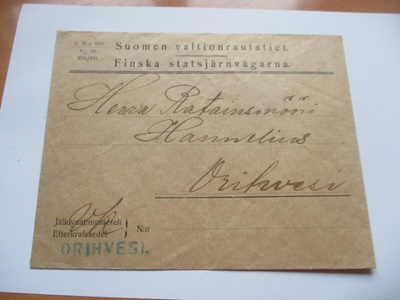 Suomen valtionrautatiet.
Finska statsjärnvägarna.
Herra Ratainsinööri
Hannelius
Orihvesi
Jälkivaatimusseteli
Efterkrafssedel
N:o
ORIHVESI.